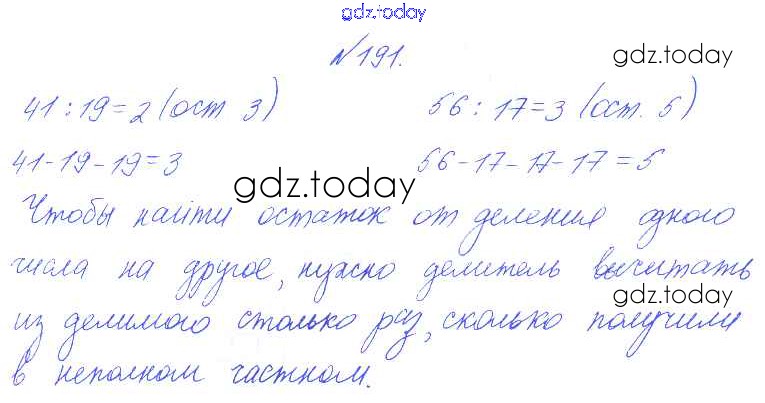 gdz.today
№191.
gdz.today
41 : 19 = 2 (ост 3)
56 : 17 = 3 (ост. 5)
41 - 19 - 19 = 3
56 - 17 - 17 - 17 = 5
gdz.today
Чтобы найти остаток от деления одного
числа на другое, нужно делитель вычитать
gdz.today
из делимого столько раз, сколько получили
в неполном частном.